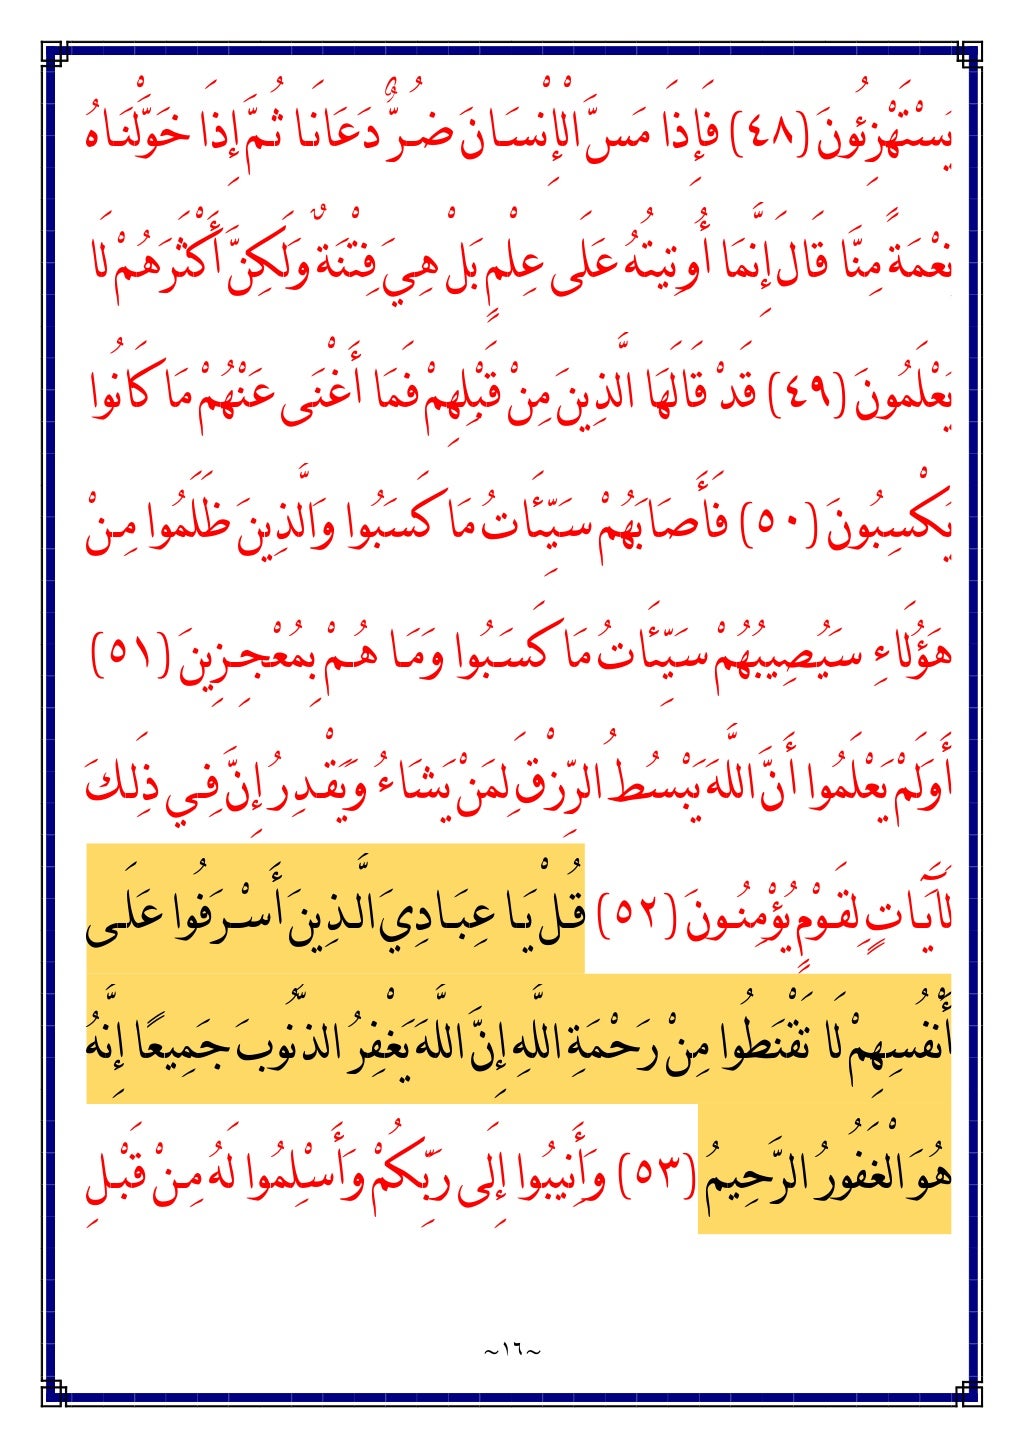 يَسْتَهْزِئُونَ (٤٨) فَإِذَا مَسَّ الْإِنْسَانَ ضُرٌّ دَعَانَا ثُمَّ إِذَا خَوَّلْنَاهُ
نِعْمَةً مِنَّا قَالَ إِنَّمَا أُوتِيتُهُ عَلَى عِلْمٍ بَلْ هِيَ فِتْنَةٌ وَلَكِنَّ أَكْثَرَهُمْ لَا
يَعْلَمُونَ (٤٩) قَدْ قَالَهَا الَّذِينَ مِنْ قَبْلِهِمْ فَمَا أَغْنَى عَنْهُمْ مَا كَانُوا
يَكْسِبُونَ (٥٠) فَأَصَابَهُمْ سَيِّئَاتُ مَا كَسَبُوا وَالَّذِينَ ظَلَمُوا مِنْ
هَؤُلَاءِ سَيُصِيبُهُمْ سَيِّئَاتُ مَا كَسَبُوا وَمَا هُمْ بِمُعْجِزِينَ (٥١)
أَوَلَمْ يَعْلَمُوا أَنَّ اللَّهَ يَبْسُطُ الرِّزْقَ لِمَنْ يَشَاءُ وَيَقْدِرُ إِنَّ فِي ذَلِكَ
لَآيَاتٍ لِقَوْمٍ يُؤْمِنُونَ (٥٢) قُلْ يَا عِبَادِيَ الَّذِينَ أَسْرَفُوا عَلَى
أَنْفُسِهِمْ لَا تَقْنَطُوا مِنْ رَحْمَةِ اللَّهِ إِنَّ اللَّهَ يَغْفِرُ الذُّنُوبَ جَمِيعًا إِنَّهُ
هُوَ الْغَفُورُ الرَّحِيمُ (٥٣) وَأَنِيبُوا إِلَى رَبِّكُمْ وَأَسْلِمُوا لَهُ مِنْ قَبْلِ
~١٦~